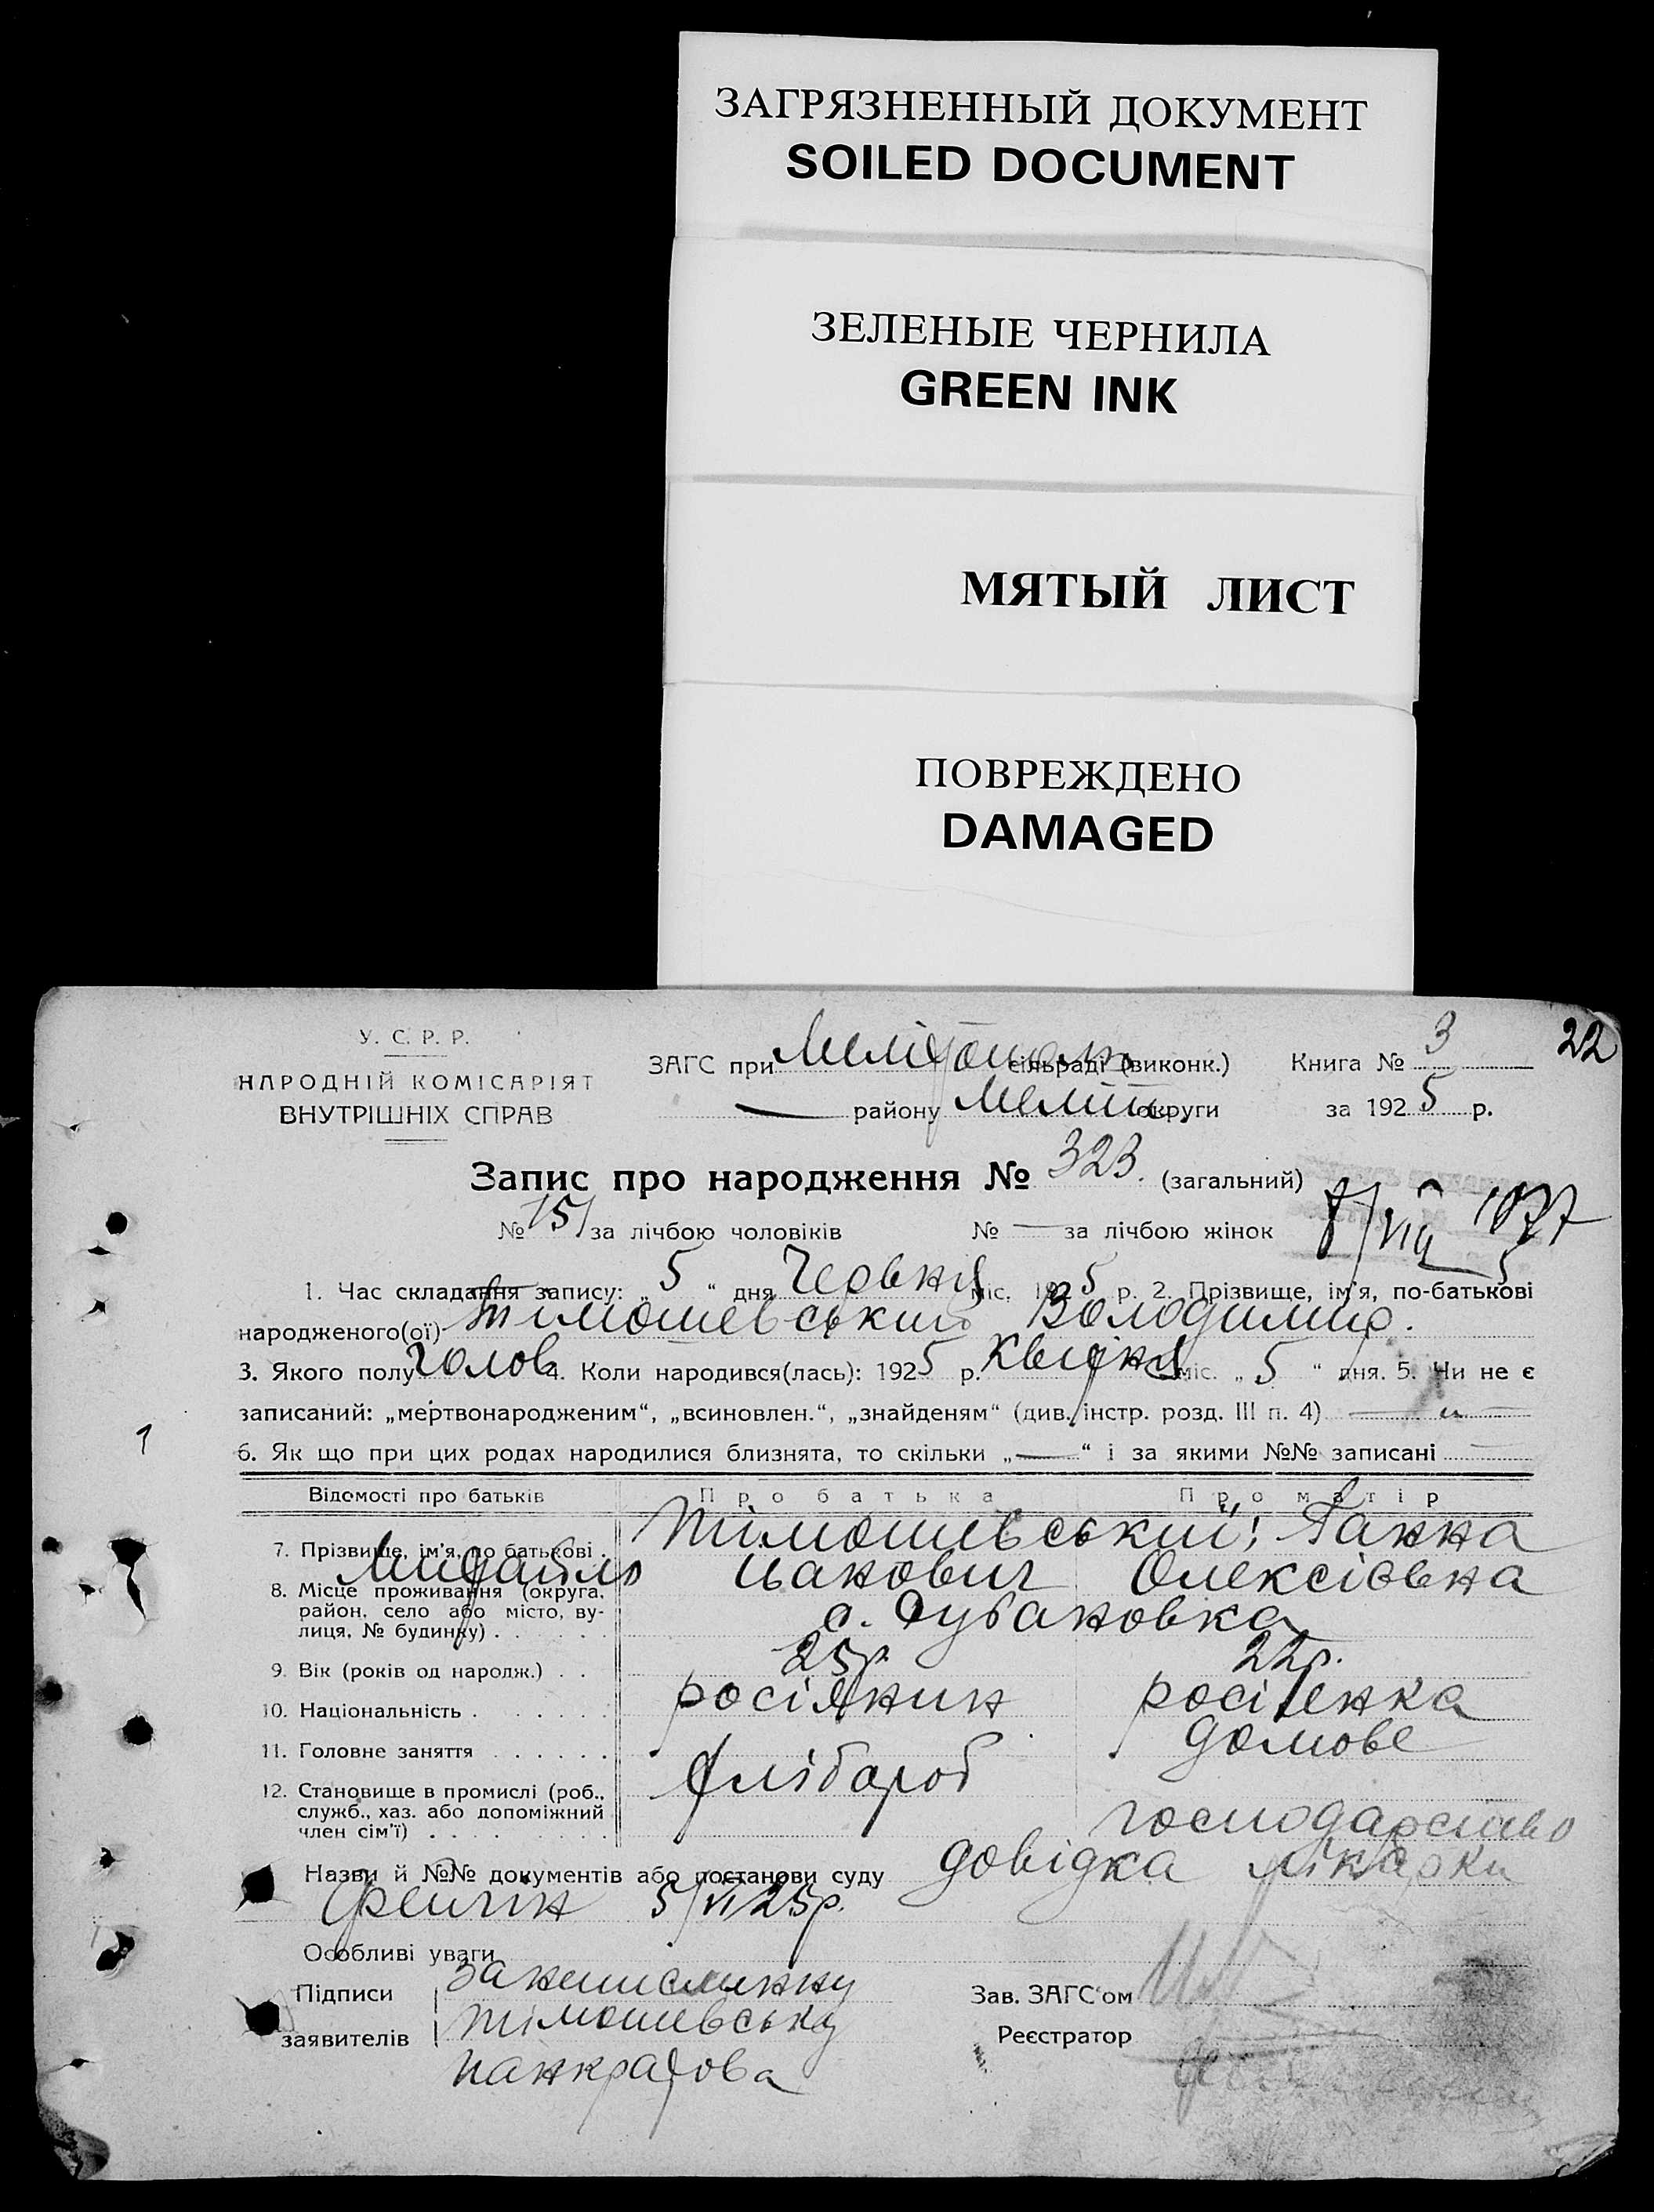 ЗАГРЯЗНЕННЫЙ ДОКУМЕНТ
SOILED DOCUMENT
ЗЕЛЕНЫЕ ЧЕРНИЛА
GREEN INK
МЯТЫЙ ЛИСТ
ПОВРЕЖДЕНО
DAMAGED
22
У. С. Р. Р.
НАРОДНІЙ КОМІСАРІЯТ
ВНУТРІШНІХ СПРАВ
ЗАГС при сільраді (виконк.) Книга № 3
— району Меліт. округи за 1925 р.
Запис про народження № 323. (загальний)
№ 151 за лічбою чоловіків № — за лічбою жінок
1. Час складання запису: „5“ дня Червня міс. 1925 р. 2. Прізвище, ім'я, по-батькові
народженого(ої) Тимошевський Володимир.
3. Якого полу чолов 4. Коли народився(лась): 1925 р. Квітня міс. „5“ дня. 5. Чи не є
записаний: „мертвонародженим“, „всиновлен.“, „знайденям“ (див. інстр. розд. III п. 4) —
6. Як що при цих родах народилися близнята, то скільки „—“ і за якими №№ записані —
Відомості про батьків Про батька Про матір
7. Прізвище, ім'я, по батькові Тімошевський; Ганна
Михайло Іванович Олексіівна
8. Місце проживання (округа,
район, село або місто, ву-
лиця, № будинку)
9. Вік (років од народж.) 25р. 22р.
10. Національність росіянин росіянка
11. Головне заняття хлібароб домове
12. Становище в промислі (роб.,
служб., хаз. або допоміжний
член сім'ї) господарство
Назви й №№ документів або постанови суду довідка лікарки
5/VI 25р.
Особливі уваги
Підписи
заявителів Тімошевську
Панкратова
Зав. ЗАГС'ом
Реєстратор
1